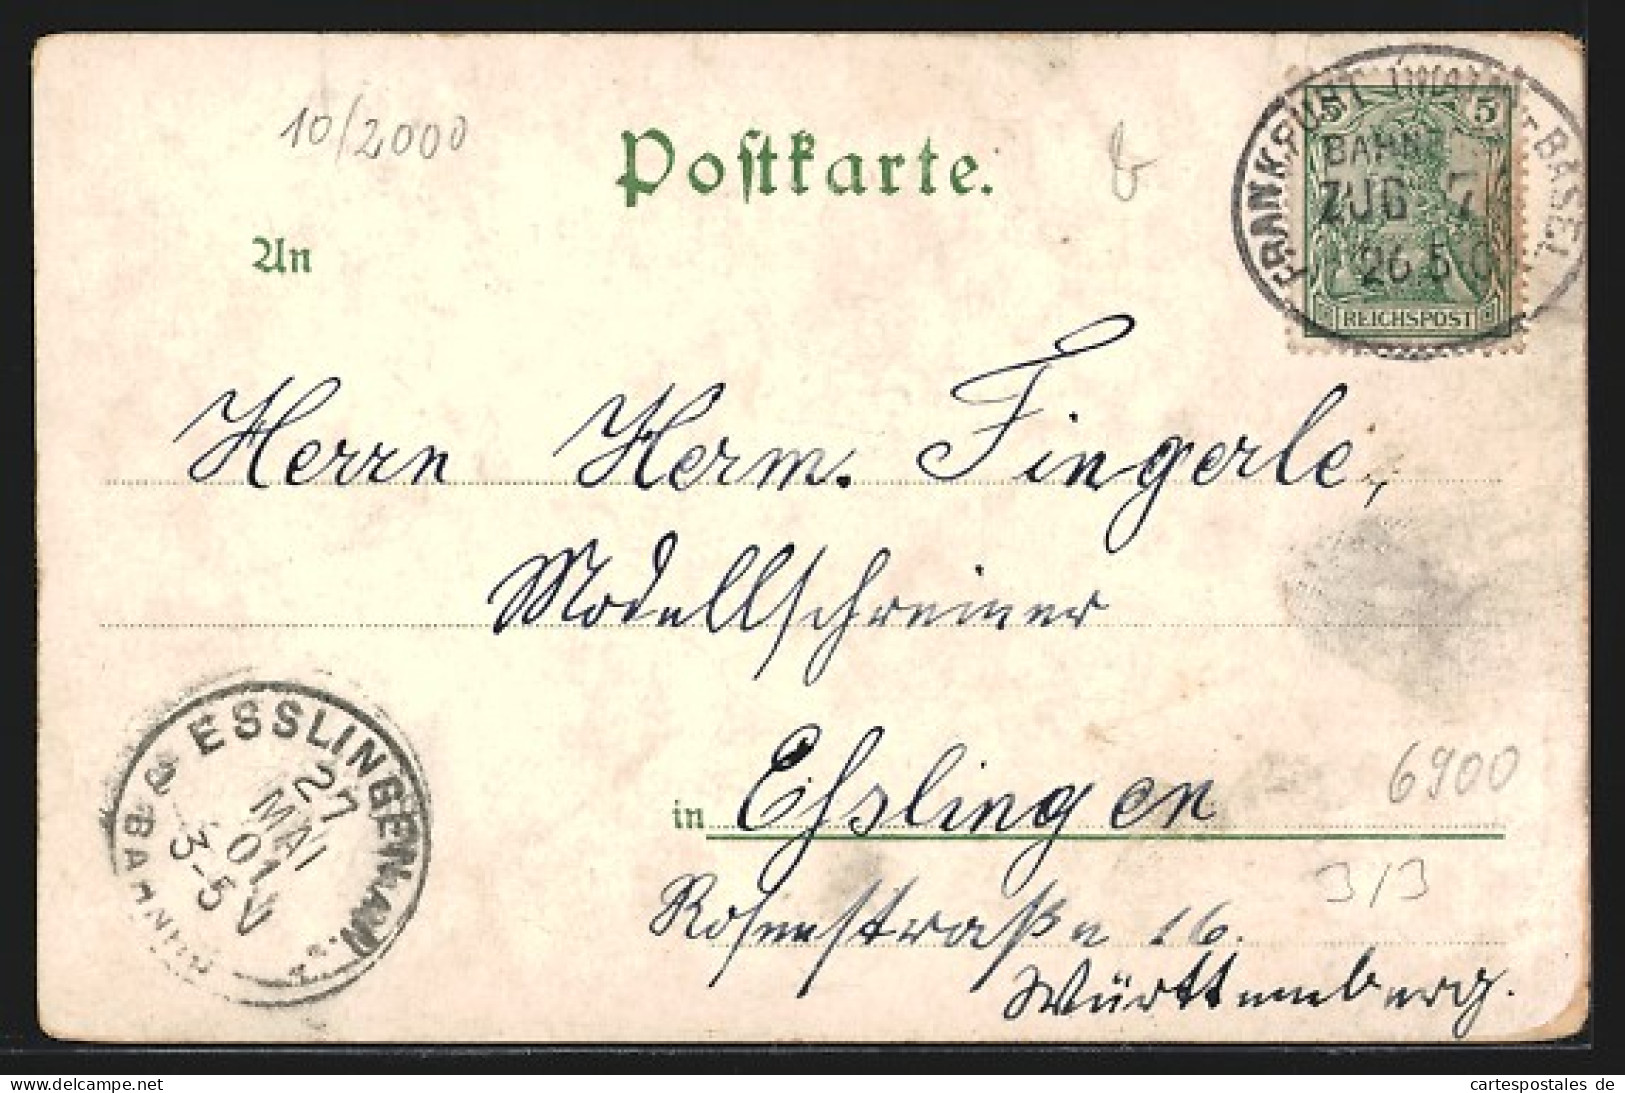 10/2000
Postkarte.
An
5
FRANKFURT (MAIN) - BASEL
BAHNPOST
ZUG 7
26.5.0
REICHSPOST
Herrn Herm. Fingerle,
Modellschreiner
in Esslingen
Rosenstraße 16.
Württemberg.
ESSLINGEN A. N.
27
MAI
01
3-5 V
BAHNHOF
6900
3/3
delcampe.net
cartespostales de